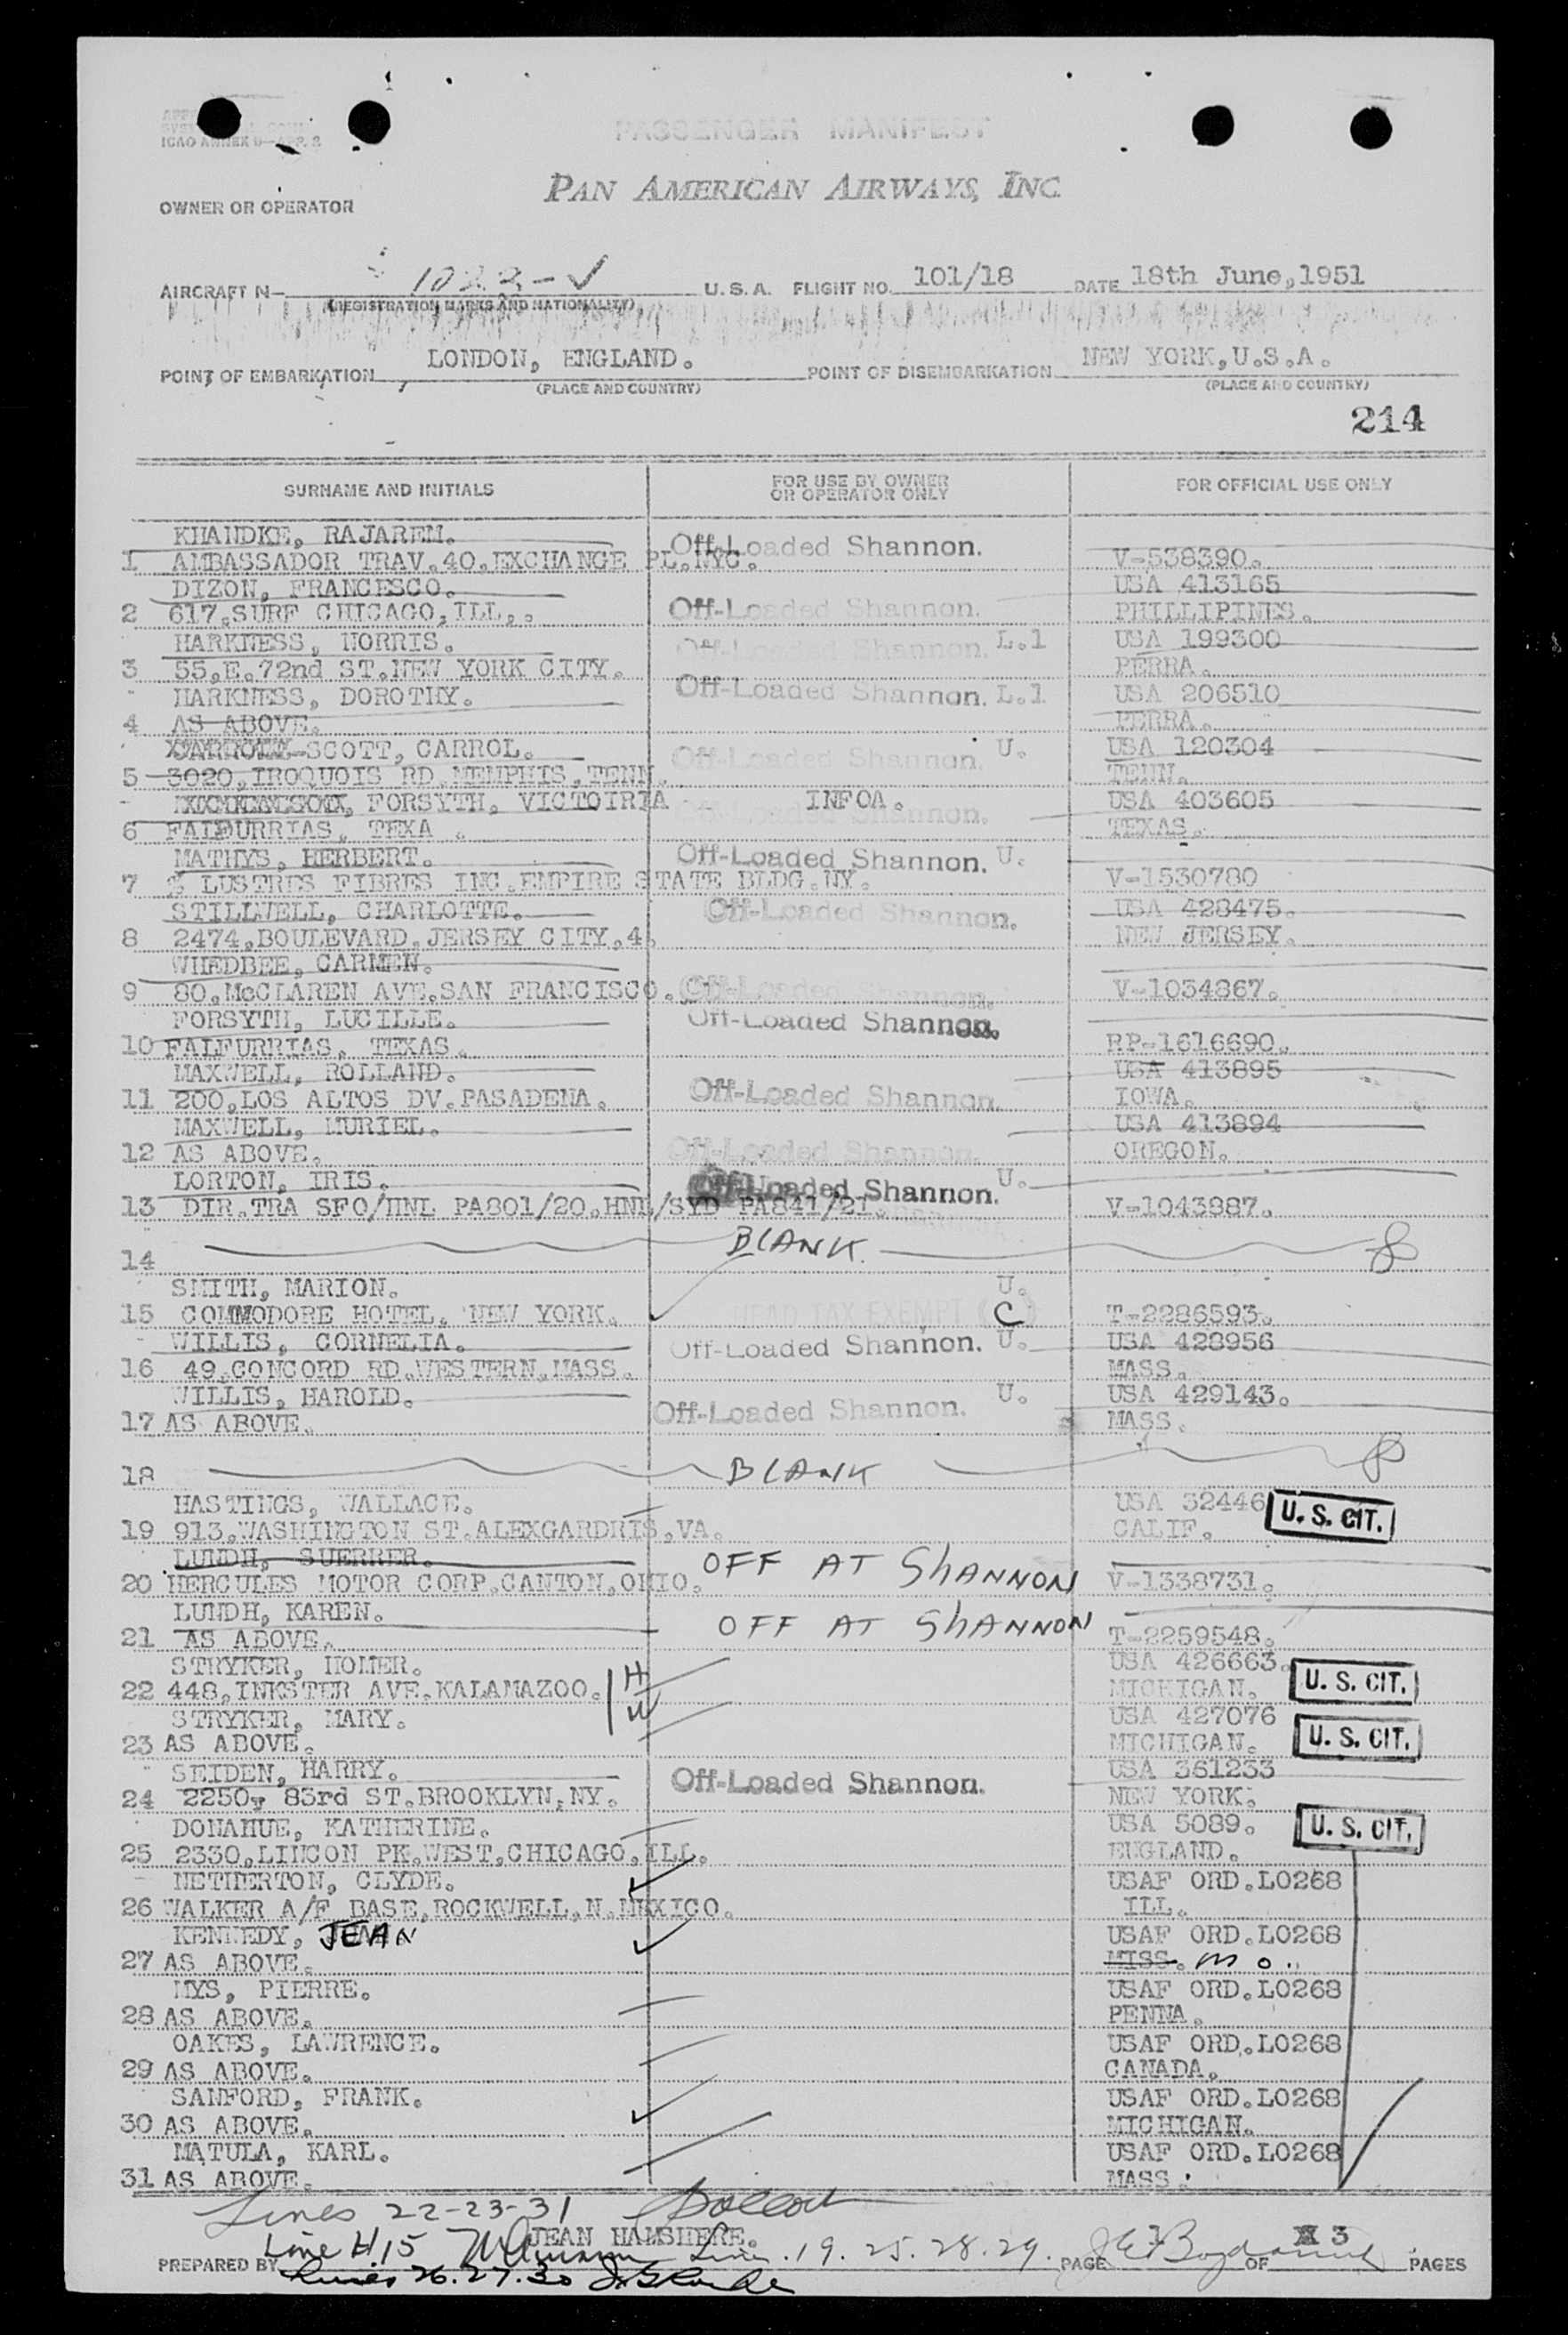 ICAO ANNEX 9—APP. 2
PASSENGER MANIFEST
PAN AMERICAN AIRWAYS, INC.
OWNER OR OPERATOR
AIRCRAFT N— 1022-V U.S.A. FLIGHT NO. 101/18 DATE 18th June,1951
(REGISTRATION MARKS AND NATIONALITY)
POINT OF EMBARKATION LONDON, ENGLAND. POINT OF DISEMBARKATION NEW YORK,U.S.A.
(PLACE AND COUNTRY) (PLACE AND COUNTRY)
214
SURNAME AND INITIALS FOR USE BY OWNER OR OPERATOR ONLY FOR OFFICIAL USE ONLY
KHANDKE, RAJAREM. Off-Loaded Shannon.
1 AMBASSADOR TRAV.40.EXCHANGE PL.NYC. V-538390.
DIZON, FRANCESCO. USA 413165
2 617.SURF CHICAGO,ILL,. Off-Loaded Shannon. PHILLIPINES.
HARKNESS, NORRIS. Off-Loaded Shannon. L.1 USA 199300
3 55.E.72nd ST.NEW YORK CITY. PERRA.
HARKNESS, DOROTHY. Off-Loaded Shannon. L.1 USA 206510
4 AS ABOVE. PERRA.
SCOTT, CARROL. Off-Loaded Shannon. U. USA 120304
5 3020,IROQUOIS RD.MEMPHIS,TENN. TENN.
FORSYTH, VICTOIRIA INFOA. USA 403605
6 FALFURRIAS, TEXA . Off-Loaded Shannon. TEXAS.
MATHYS, HERBERT. Off-Loaded Shannon. U.
7 % LUSTRES FIBRES INC.EMPIRE STATE BLDG.NY. V-1530780
STILLWELL, CHARLOTTE. Off-Loaded Shannon. USA 428475.
8 2474.BOULEVARD.JERSEY CITY.4. NEW JERSEY.
WHEDBEE, CARMEN.
9 80.McCLAREN AVE.SAN FRANCISCO. Off-Loaded Shannon. V-1034867.
FORSYTH, LUCILLE. Off-Loaded Shannon.
10 FALFURRIAS, TEXAS. RP-1616690.
MAXWELL, ROLLAND. USA 413895
11 200,LOS ALTOS DV.PASADENA. Off-Loaded Shannon. IOWA.
MAXWELL, MURIEL. USA 413894
12 AS ABOVE. Off-Loaded Shannon. OREGON.
LORTON, IRIS. Off-Loaded Shannon. U.
13 DIR.TRA SFO/HNL PA801/20.HNL/SYD PA841/21. V-1043887.
14 BLANK.
SMITH, MARION. U.
15 COMMODORE HOTEL. NEW YORK. HEAD TAX EXEMPT (C) T-2286593.
WILLIS, CORNELIA. Off-Loaded Shannon. U. USA 428956
16 49.CONCORD RD.WESTERN.MASS. MASS.
WILLIS, HAROLD. Off-Loaded Shannon. U. USA 429143.
17 AS ABOVE. MASS.
18 BLANK
HASTINGS, WALLACE. USA 32446 U. S. CIT.
19 913.WASHINGTON ST.ALEXGARDRIS,VA. CALIF.
LUNDH, SUERRER. OFF AT SHANNON
20 HERCULES MOTOR CORP.CANTON.OHIO. V-1338731.
LUNDH, KAREN. OFF AT SHANNON
21 AS ABOVE. T-2259548.
STRYKER, HOMER. H USA 426663. U. S. CIT.
22 448.INKSTER AVE.KALAMAZOO. W MICHIGAN.
STRYKER, MARY. USA 427076 U. S. CIT.
23 AS ABOVE. MICHIGAN.
SEIDEN, HARRY. Off-Loaded Shannon. USA 361233
24 2250, 83rd ST.BROOKLYN,NY. NEW YORK.
DONAHUE, KATHERINE. USA 5089. U. S. CIT.
25 2330.LINCON PK.WEST.CHICAGO.ILL. ENGLAND.
NETHERTON, CLYDE. USAF ORD.L0268
26 WALKER A/F BASE,ROCKWELL,N.MEXICO. ILL.
KENNEDY, JEAN USAF ORD.L0268
27 AS ABOVE. MISS. Mo.
MYS, PIERRE. USAF ORD.L0268
28 AS ABOVE. PENNA.
OAKES, LAWRENCE. USAF ORD.L0268
29 AS ABOVE. CANADA.
SANFORD, FRANK. USAF ORD.L0268
30 AS ABOVE. MICHIGAN.
MATULA, KARL. USAF ORD.L0268
31 AS ABOVE. MASS.
Lines 22-23-31
JEAN HAMSHERE.
Line #15 Line . 19. 25. 28. 29.
PREPARED BY PAGE 1 OF 3 PAGES
Lines 26.27.30